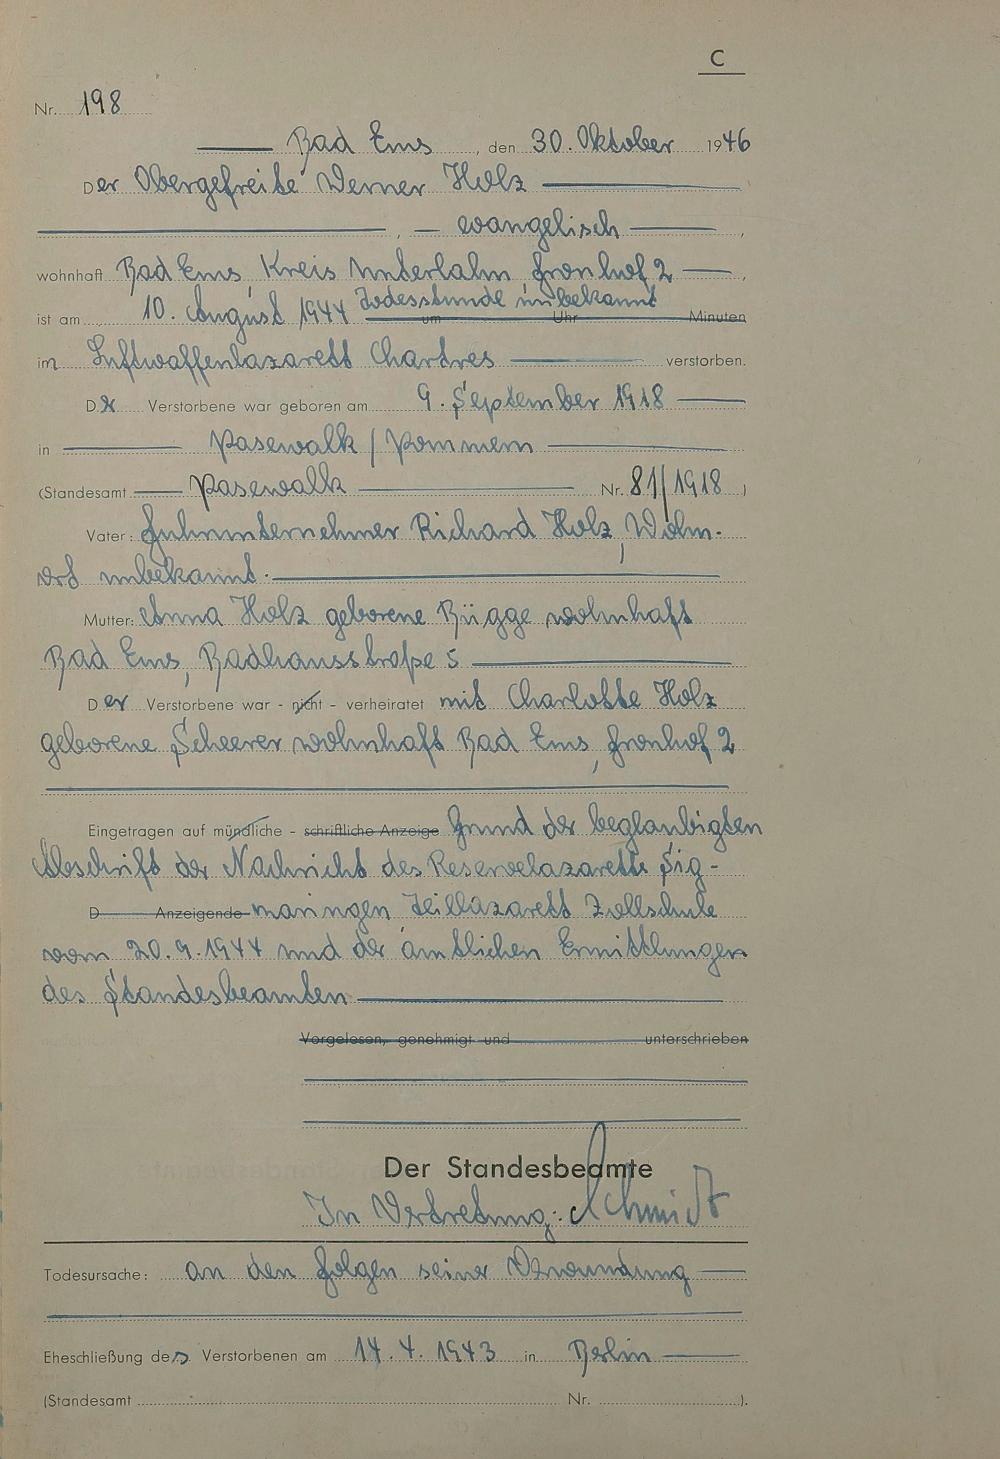 C
Nr. 198
Bad Ems, den 30. Oktober 1946
Der Obergefreite Werner Holz
, — evangelisch ,
wohnhaft Bad Ems, Kreis Unterlahn, Fronhof 2 ,
ist am 10. August 1944 Todesstunde unbekannt um Uhr Minuten
im Luftwaffenlazarett Chartres verstorben.
Der Verstorbene war geboren am 9. September 1918
in Pasewalk / Pommern
(Standesamt Pasewalk Nr. 81/1918 )
Vater: Fuhrunternehmer Richard Holz, Wohn-
ort unbekannt.
Mutter: Anna Holz geborene Rügge wohnhaft
Bad Ems, Badhausstraße 5
Der Verstorbene war - nicht - verheiratet mit Charlotte Holz
geborene Scheerer wohnhaft Bad Ems, Fronhof 2
Eingetragen auf mündliche - schriftliche Anzeige Grund der beglaubigten
Abschrift der Nachricht des Reservelazaretts Sig-
D Anzeigende maringen Teillazarett Zollschule
vom 20.9.1944 und der amtlichen Ermittlungen
des Standesbeamten
Vorgelesen, genehmigt und unterschrieben
Der Standesbeamte
In Vertretung: Schmidt
Todesursache: an den Folgen seiner Verwundung
Eheschließung des Verstorbenen am 14.4.1943 in Berlin
(Standesamt Nr. ).